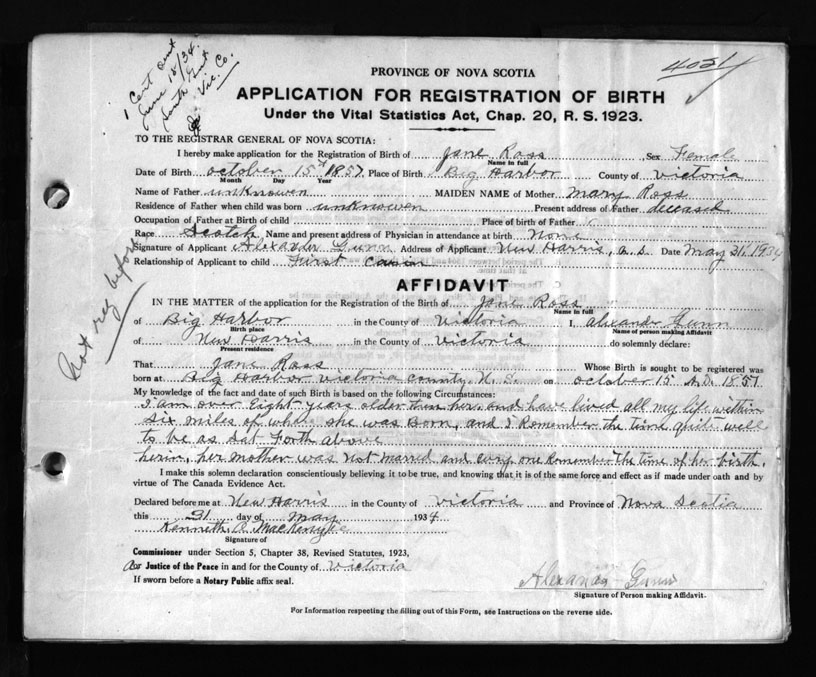 1 Cert sent
June 15/34.
Vic. Co.
4051
PROVINCE OF NOVA SCOTIA
APPLICATION FOR REGISTRATION OF BIRTH
Under the Vital Statistics Act, Chap. 20, R. S. 1923.
TO THE REGISTRAR GENERAL OF NOVA SCOTIA:
I hereby make application for the Registration of Birth of Jane Ross Sex Female
Name in full
Date of Birth october 15th 1857 Place of Birth Big Harbor County of victoria
Month Day Year
Name of Father unknowen MAIDEN NAME of Mother Mary Ross
Residence of Father when child was born unknowen Present address of Father deceased
Occupation of Father at Birth of child Place of birth of Father
Race Scotch Name and present address of Physician in attendance at birth None
Signature of Applicant Alexander Gunn Address of Applicant New Harris, Date May 31, 1934
Relationship of Applicant to child First
Not reg before
AFFIDAVIT
IN THE MATTER of the application for the Registration of the Birth of Jane Ross
Name in full
of Big Harbor in the County of Victoria I, Alexander Gunn
Birth place Name of person making Affidavit
of New Harris in the County of Victoria do solemnly declare:
Present residence
That Jane Ross Whose Birth is sought to be registered was
born at Big Harbor victoria county, N. S. on october 15 A.D. 1857
My knowledge of the fact and date of such Birth is based on the following Circumstances:
I am over Eight years older then her and have lived all my life within
six miles of while she was Born, and I Remember the time quite well
to be as Sat Forth above
herin, her mother was Not married and every one Remember the time of her birth.
I make this solemn declaration conscientiously believing it to be true, and knowing that it is of the same force and effect as if made under oath and by
virtue of The Canada Evidence Act.
Declared before me at New Harris in the County of Victoria and Province of Nova Scotia
this 31 day of May 1934
Kenneth A. MacKenzie
Signature of
Commissioner under Section 5, Chapter 38, Revised Statutes, 1923,
or Justice of the Peace in and for the County of Victoria
If sworn before a Notary Public affix seal.
Alexander Gunn
Signature of Person making Affidavit.
For Information respecting the filling out of this Form, see Instructions on the reverse side.